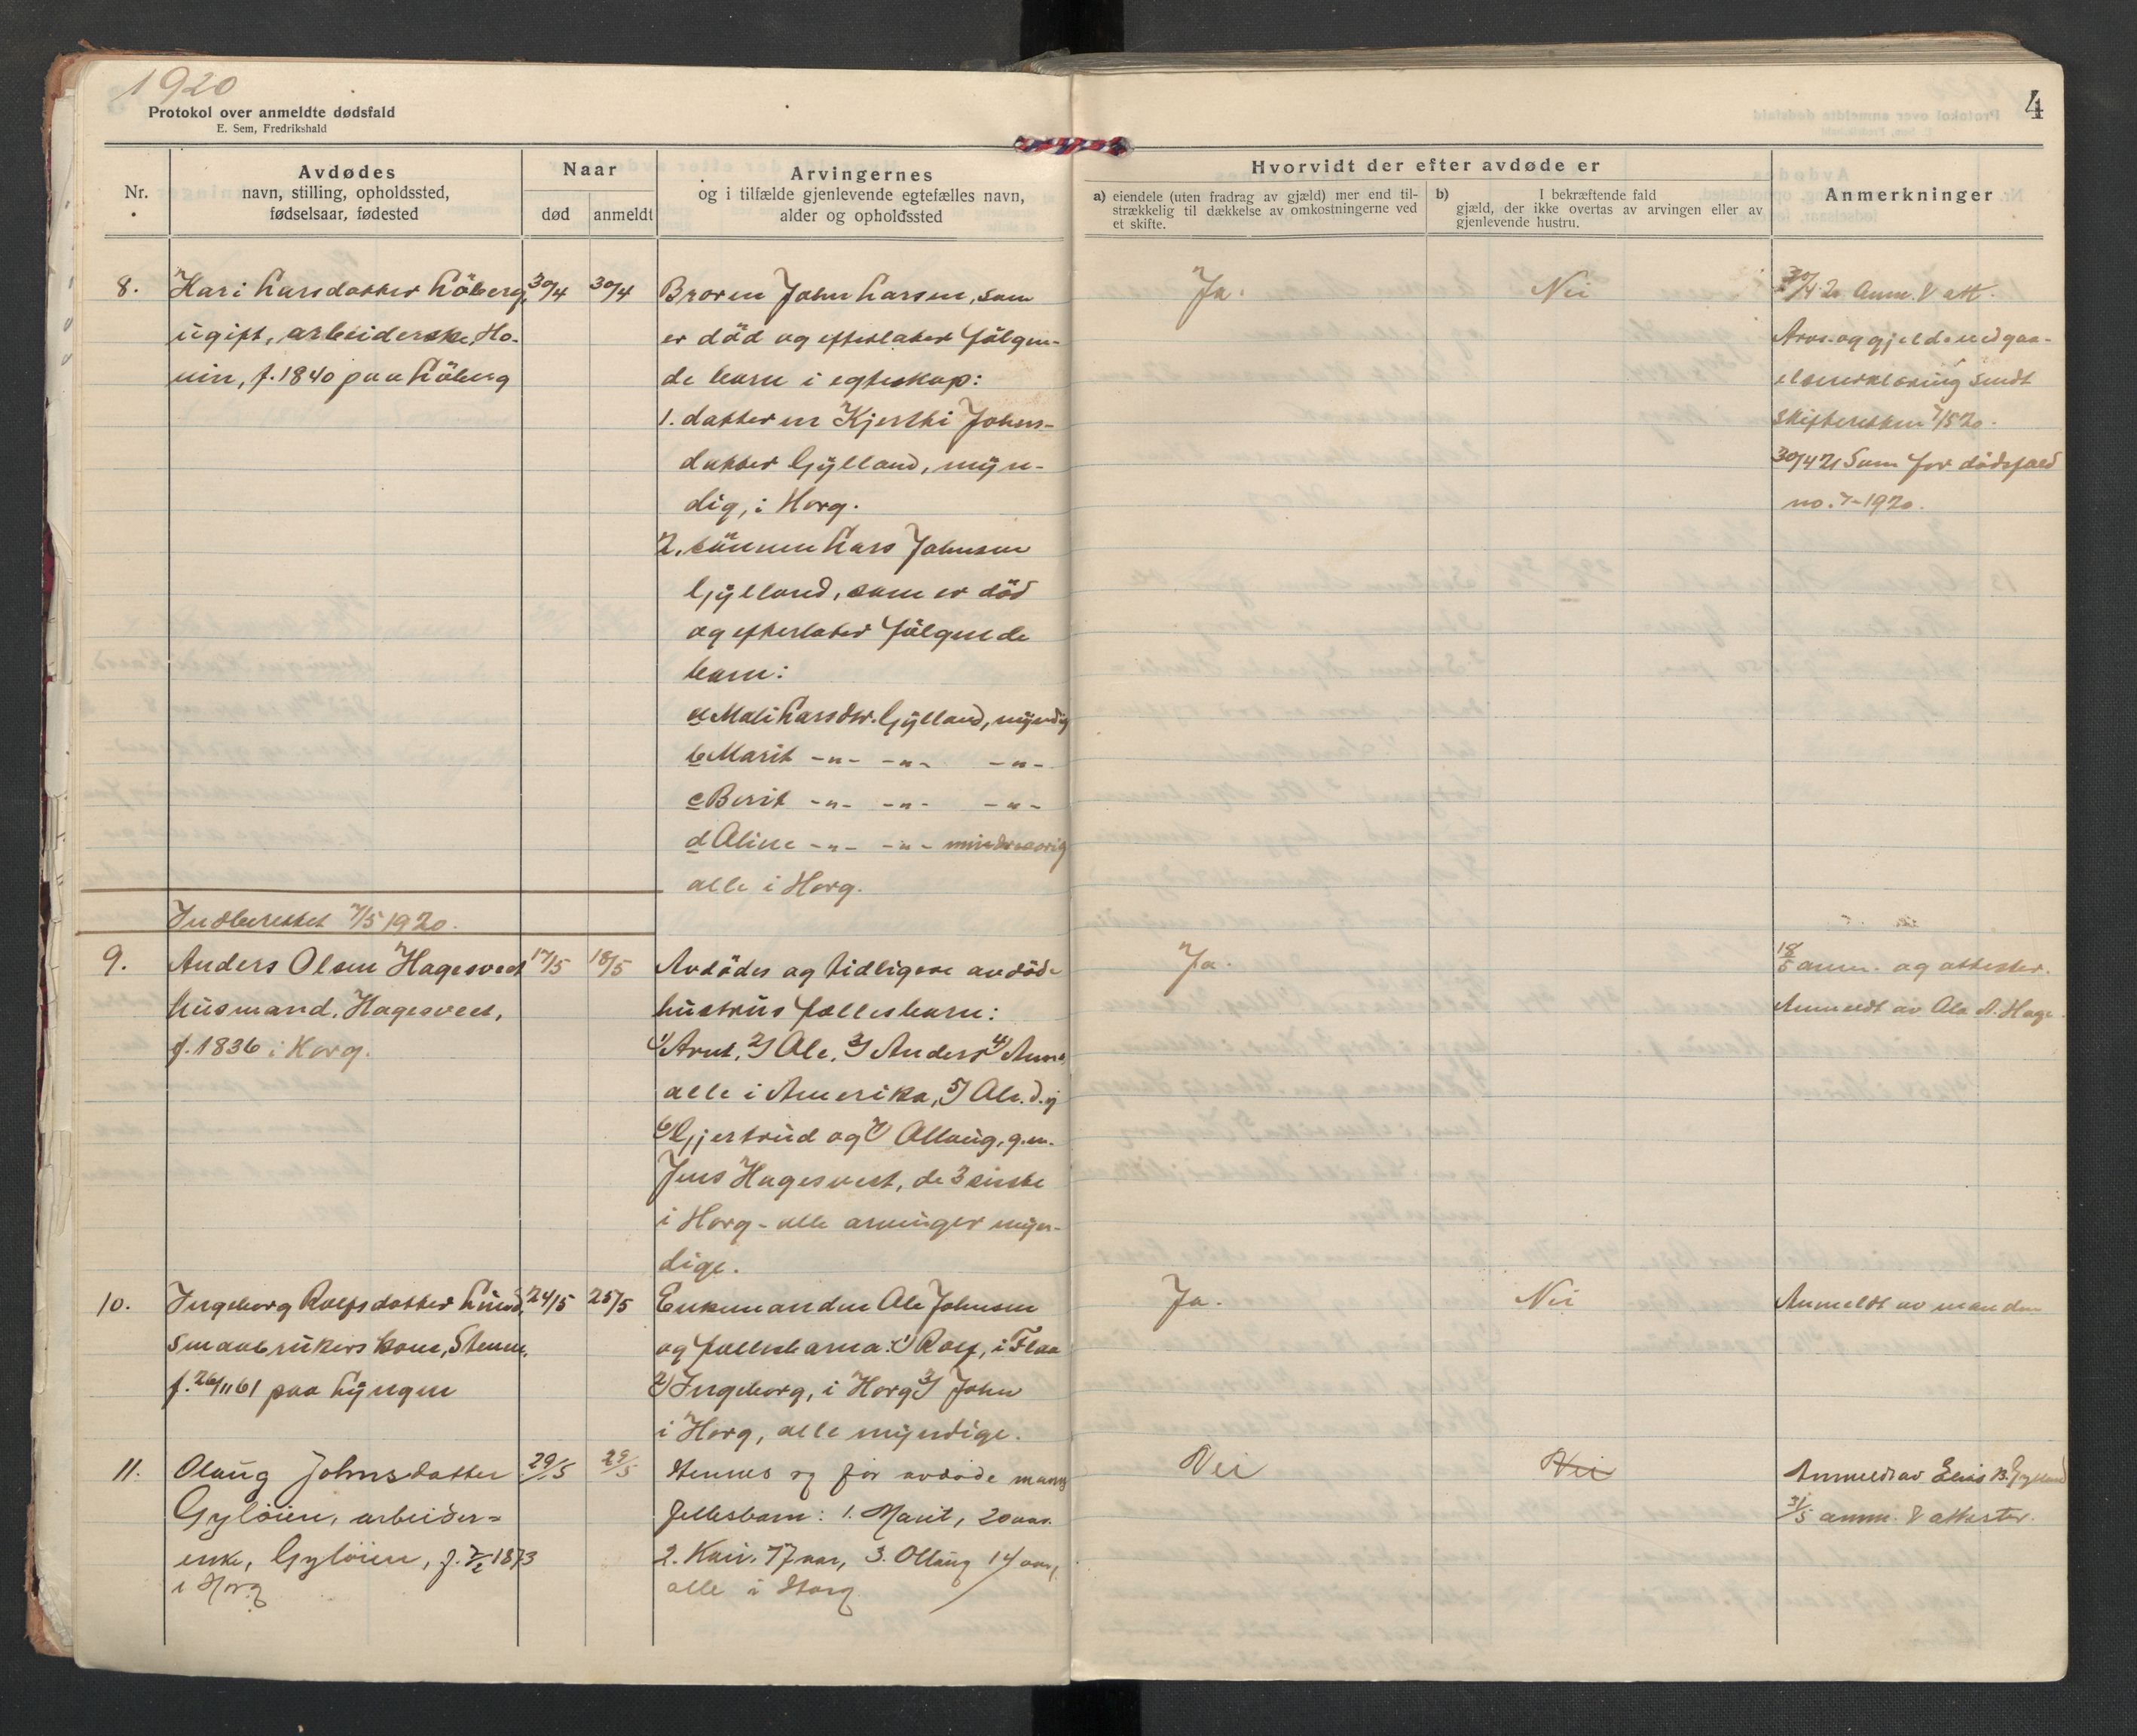 1920
Protokol over anmeldte dødsfald
E. Sem, Fredrikshald
4
Nr.
Avdødes
navn, stilling, opholdssted,
fødselsaar, fødested
Naar
død
anmeldt
Arvingernes
og i tilfælde gjenlevende egtefælles navn,
alder og opholdssted
Hvorvidt der efter avdøde er
a) eiendele (uten fradrag av gjæld) mer end til-
strækkelig til dækkelse av omkostningerne ved
et skifte.
b) I bekræftende fald
gjæld, der ikke overtas av arvingen eller av
gjenlevende hustru.
Anmerkninger
8.
Kari Larsdatter Löberg,
ugift, arbeiderske, Ho-
vin, f. 1840 paa Löberg
30/4
30/4
Broren John Larsen, som
er död og efterlater fölgen-
de barn i egteskap:
1. datteren Kjersti Johns-
datter Gylland, myn-
dig, i Horg.
2. sönnen Lars Johnsen
Gylland, som er död
og efterlater fölgende
barn:
a Mali Larsdtr. Gylland, myndig
b Marit -"- -"- -"-
c Berit -"- -"- -"-
d Oline -"- -"- mindreaarig
alle i Horg.
Ja.
Nei
30/4 20 Anm. & att.
Arvs- og gjeldsvedgaa-
elseserklæring sendt
skifteretten 7/5 20.
30/4 21 Sam for dödsfald
no. 7-1920.
Indberettet 7/5 1920.
9.
Anders Olsen Hagesveet
husmand, Hagesveet,
f. 1836 i Horg.
17/5
18/5
Avdödes og tidligere avdöde
hustrus fællesbarn:
1) Arnt, 2) Ole, 3) Anders 4) Anne,
alle i Amerika, 5) Ole d.y
6) Gjertrud og 7) Ollaug, g.m.
Jens Hagesveet, de 3 sidste
i Horg - alle arvinger myn-
dige.
Ja.
18/5 anm. og attester.
Anmeldt av Ole A. Hage.
10.
Ingeborg Rolfsdatter Lund,
smaabrukers kone, Steinn,
f. 26/11 61 paa Lyngen
24/5
25/5
Enkemanden Ole Johnsen
og fællesbarna: 1) Rolf, i Flaa
2) Ingeborg, i Horg 3) John
i Horg, alle myndige.
Ja.
Nei
Anmeldt av manden
11.
Olaug Johnsdatter
Gylöien, arbeider=
enke, Gylöien, f. 7/2 1873
i Horg
29/5
29/5
Hennes og för avdöde mands
fellesbarn: 1. Marit, 20 aar.
2. Kari, 17 aar, 3. Ollaug 14 aar,
alle i Horg
Nei
Nei
Anmeldt av Elias B. Gylland
31/5 anm. & attester.